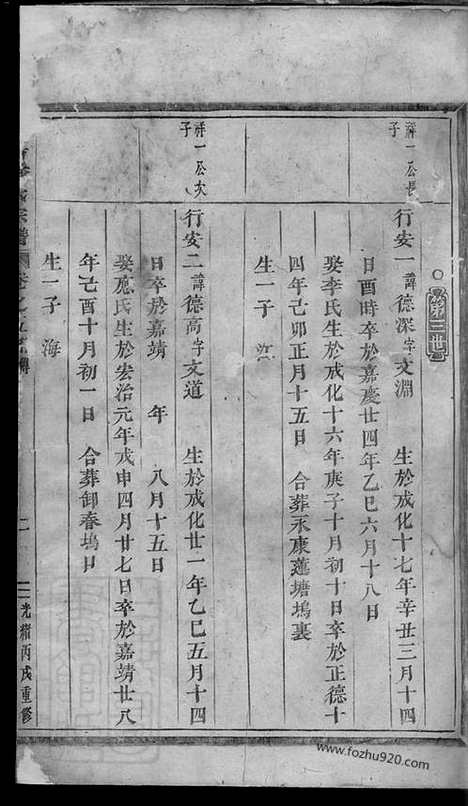 第三世
祥一公長子
行安一諱德深字文淵 生於成化十七年辛丑三月十四
日酉時卒於嘉慶廿四年乙巳六月十八日
娶李氏生於成化十六年庚子十月初十日卒於正德十
四年己卯正月十五日 合葬永康蓮塘塢裏
生一子
祥一公次子
行安二諱德高字文道 生於成化廿一年乙巳五月十四
日卒於嘉靖 年 八月十五日
娶應氏生於宏治元年戊申四月廿七日卒於嘉靖廿八
年己酉十月初一日 合葬卸春塢日
生一子 海
宗譜
二
光緒丙戌重修
www.fozhu920.com